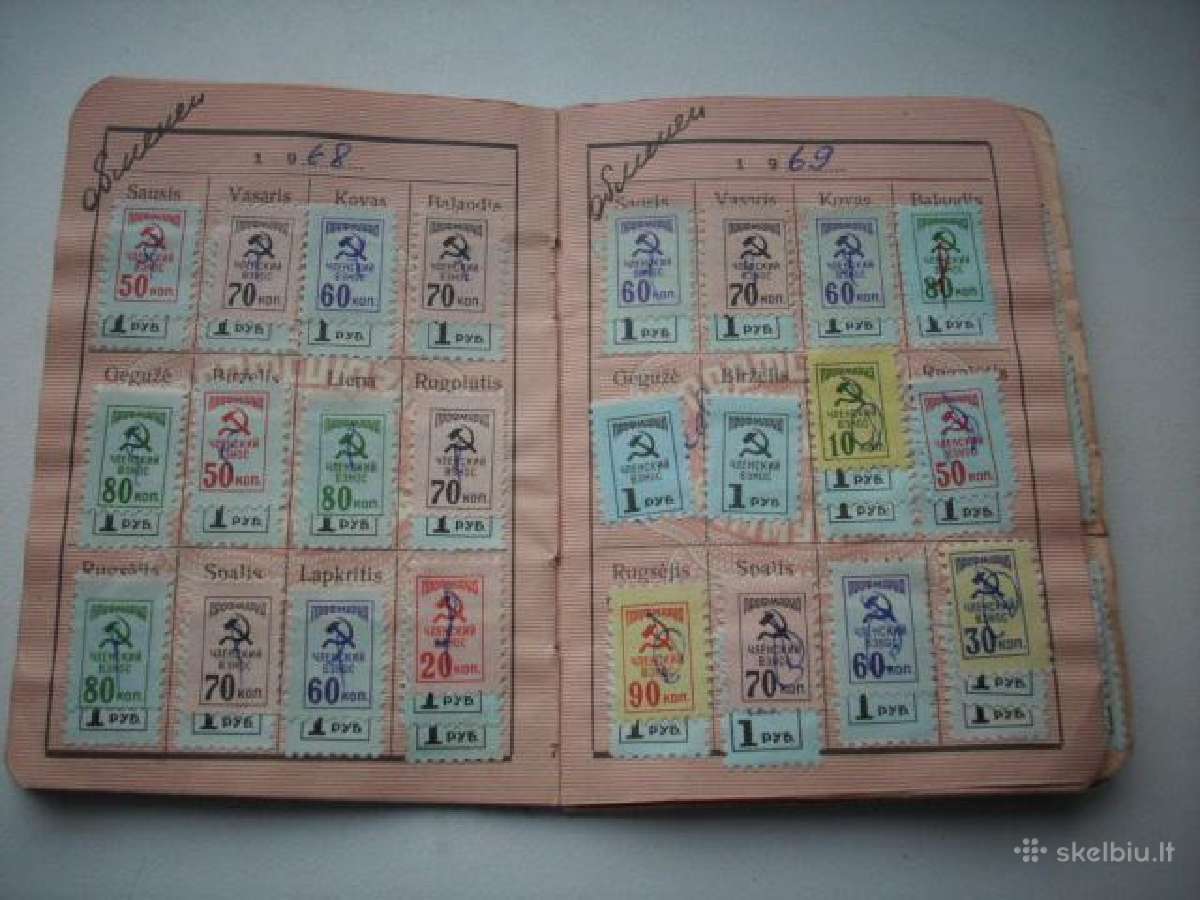 обменен
1968
Sausis Vasaris Kovas Balandis
ПРОФСОЮЗ ПРОФСОЮЗ ПРОФСОЮЗ ПРОФСОЮЗ
ЧЛЕНСКИЙ ВЗНОС ЧЛЕНСКИЙ ВЗНОС ЧЛЕНСКИЙ ВЗНОС ЧЛЕНСКИЙ ВЗНОС
50 КОП. 70 КОП. 60 КОП. 70 КОП.
1 РУБ. 1 РУБ. 1 РУБ. 1 РУБ.
Gegužė Birželis Liepa Rugpiūtis
ЧЛЕНСКИЙ ВЗНОС ЧЛЕНСКИЙ ВЗНОС ЧЛЕНСКИЙ ВЗНОС ЧЛЕНСКИЙ ВЗНОС
80 КОП. 50 КОП. 80 КОП. 70 КОП.
1 РУБ. 1 РУБ. 1 РУБ. 1 РУБ.
Rugsėjis Spalis Lapkritis
ЧЛЕНСКИЙ ВЗНОС ЧЛЕНСКИЙ ВЗНОС ЧЛЕНСКИЙ ВЗНОС ЧЛЕНСКИЙ ВЗНОС
80 КОП. 70 КОП. 60 КОП. 20 КОП.
1 РУБ. 1 РУБ. 1 РУБ. 1 РУБ.
1 РУБ.
7
обменен
1969
Sausis Vasaris Kovas Balandis
ЧЛЕНСКИЙ ВЗНОС ЧЛЕНСКИЙ ВЗНОС ЧЛЕНСКИЙ ВЗНОС ЧЛЕНСКИЙ ВЗНОС
60 КОП. 70 КОП. 60 КОП. 80 КОП.
1 РУБ. 1 РУБ. 1 РУБ. 1 РУБ.
Gegužė Birželis Rugpiūtis
ЧЛЕНСКИЙ ВЗНОС ЧЛЕНСКИЙ ВЗНОС ЧЛЕНСКИЙ ВЗНОС ЧЛЕНСКИЙ ВЗНОС
1 РУБ. 1 РУБ. 10 КОП. 50 КОП.
1 РУБ.
1 РУБ. 1 РУБ.
Rugsėjis Spalis
ЧЛЕНСКИЙ ВЗНОС ЧЛЕНСКИЙ ВЗНОС ЧЛЕНСКИЙ ВЗНОС ЧЛЕНСКИЙ ВЗНОС
90 КОП. 70 КОП. 60 КОП. 30 КОП.
1 РУБ. 1 РУБ. 1 РУБ. 1 РУБ.
1 РУБ.
skelbiu.lt